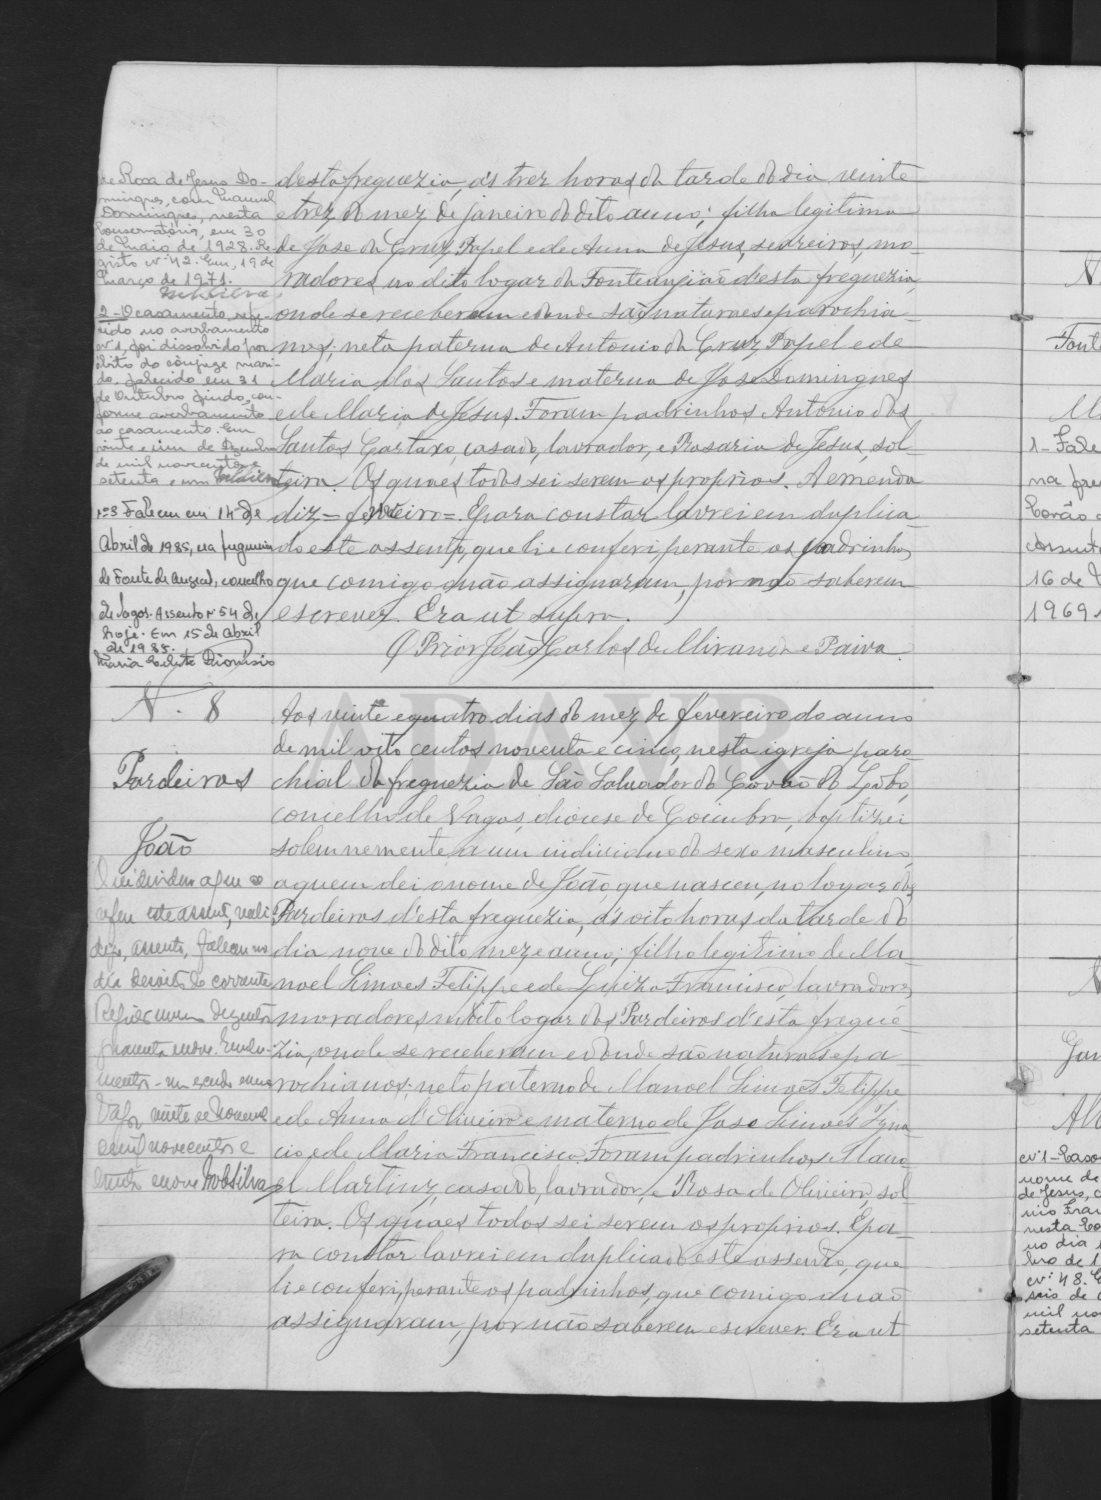 de Rosa de Jesus Do-
mingues, com Manuel
Domingues, nesta
Conservatória, em 30
de Maio de 1928. Re-
gisto nº 42. Em, 19 de
Março de 1971.
2-O casamento refe-
rido no averbamento
nº 1, foi dissolvido por
óbito do cônjuge mari-
do, falecido em 31
de Outubro findo, con-
forme averbamento
ao casamento. Em
vinte e um de Dezembro
de mil novecentos e
setenta e um
nº 3 Faleceu em 14 de
Abril de 1985, na freguesia
de Fonte de Angeão, concelho
de Vagos. Assento nº 54 de
hoje. Em 15 de Abril
de 1985.
Maria Celeste Dionísio
desta freguezia, ás trez horas da tarde do dia vinte
e trez do mez de janeiro do dito anno; filha legitima
de José da Cruz Papel e de Anna de Jesus, seareiros, mo-
radores no dito logar da Fonte angião d'esta freguezia,
onde se receberam e donde são naturaes e parochia-
nos; neta paterna de Antonio da Cruz Papel e de
Maria dos Santos e materna de José Domingues
e de Maria de Jesus. Foram padrinhos Antonio dos
Santos Cartaxo, casado, lavrador, e Rosaria de Jesus, sol-
teira. Os quaes todos sei serem os proprios. A emenda
diz = = E para constar lavrei em duplica-
do este assento, que li e conferi perante os padrinhos,
que comigo não assignaram, por não saberem
escrever. Era ut supra.
O Prior João Carlos de Miranda e Paiva
N. 8
Pardeiros
João
este assento,
assento, faleceu no
dia dezoito do corrente
vinte de
mil novecentos e
Aos vinte e quatro dias do mez de fevereiro do anno
de mil oito centos noventa e cinco, nesta igreja paro-
chial da freguezia de São Salvador do Covão do Lobo,
concelho de Vagos, diocese de Coimbra, baptizei
solemnemente a um individuo do sexo masculino,
a quem dei o nome de João, que nasceu, no logar dos
Pardeiros d'esta freguezia, ás oito horas da tarde do
dia nove do dito mez e anno; filho legitimo de Ma-
noel Simoes Felippe e de Luiza Francisco, lavradores,
moradores no dito logar dos Pardeiros d'esta fregue-
zia, onde se receberam e donde são naturaes e pa-
rochianos; neto paterno de Manoel Simoes Felippe
e de Anna d'Oliveira e materno de José Simoes Igna-
cio, e de Maria Francisco. Foram padrinhos, Mano-
el Martinz, casado, lavrador, e Rosa de Oliveira, sol-
teira. Os quaes todos sei serem os proprios. E pa-
ra constar lavrei em duplicado este assento, que
li e conferi, perante os padrinhos, que comigo não
assignaram, por não saberem escrever. Era ut
ADAVR
N
Fonte
1- Fale
na fre
Covão
16 de
1969
nº 1- Caso
nome de
de Jesus, c
nio Fran
nesta Co
no dia
bro de 1
nº 48. E
seis de
mil no
setenta